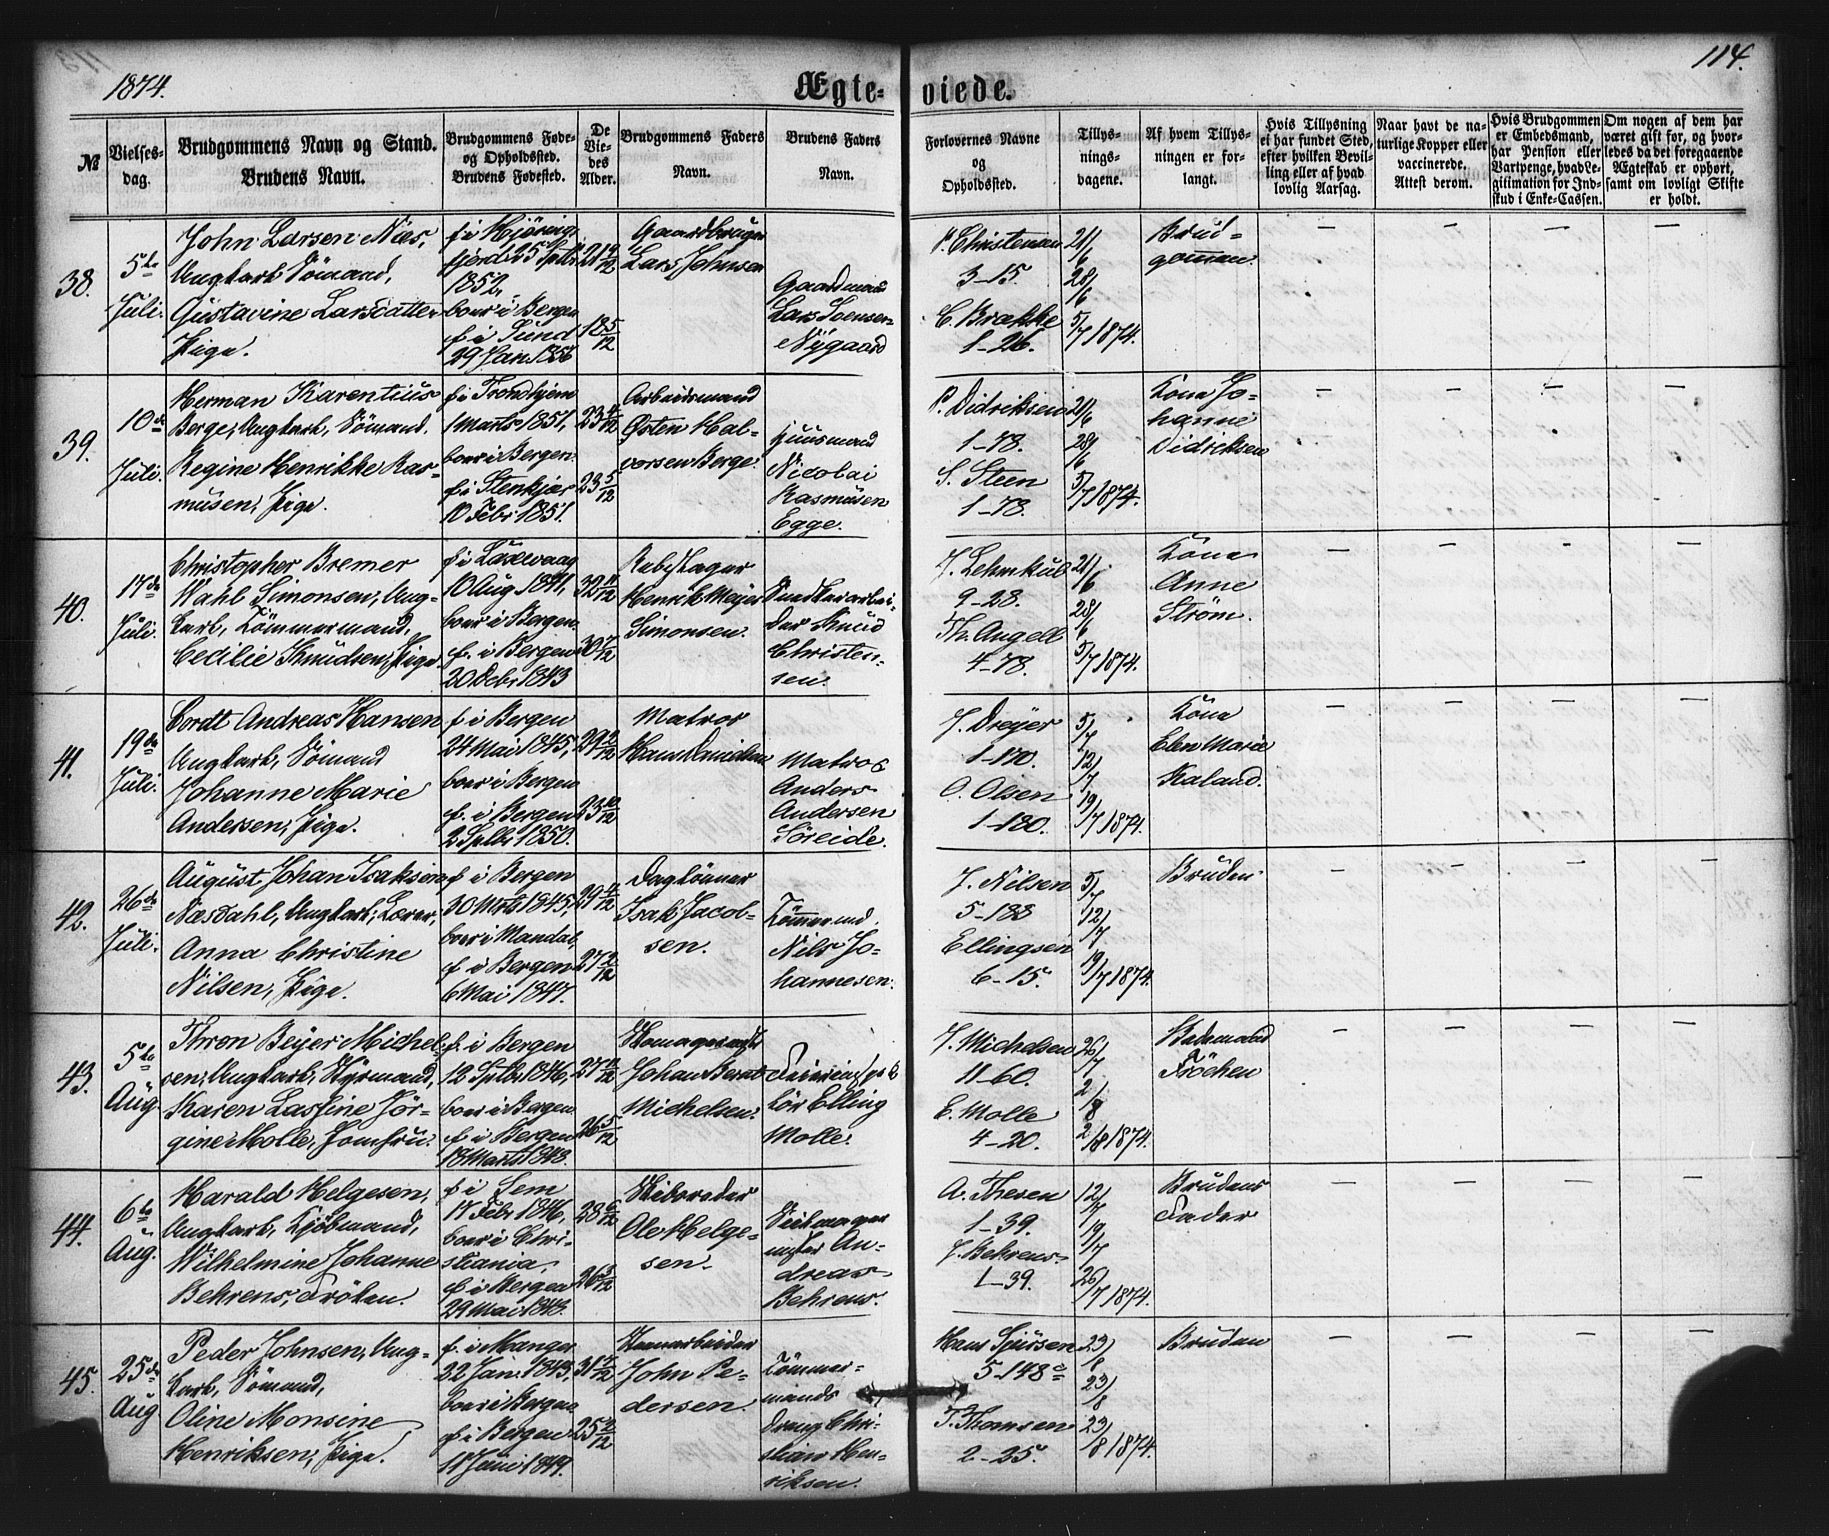 1874.
114.
Ægte-
viede.
№
Vielses-
dag.
Brudgommens Navn og Stand.
Brudens Navn.
Brudgommens Føde-
og Opholdssted.
Brudens Fødested.
De
Vie-
des
Alder.
Brudgommens Faders
Navn.
Brudens Faders
Navn.
Forlovernes Navne
og
Opholdssted.
Tillys-
nings-
dagene.
Af hvem Tillys-
ningen er for-
langt.
Hvis Tillysning
ei har fundet Sted,
efter hvilken Bevil-
ling eller af hvad
lovlig Aarsag.
Naar havt de na-
turlige Kopper eller
vaccinerede.
Attest derom.
Hvis Brudgommen
er Embedsmand,
har Pension eller
Vartpenge, hvad Le-
gitimation for Ind-
skud i Enke-Cassen.
Om nogen af dem har
været gift før, og hvor-
ledes da det foregaaende
Ægteskab er ophørt,
samt om lovligt Skifte
er holdt.
38.
5te
Juli.
John Larsen Næs,
Ungkarl Sömand,
Gustavine Larsdatter
Pige.
1852,
boer i Bergen
f i Sund
29 Jan 1856
18 5/12
Gaardbruger
Lars Johnsen
Gaardmand
Lars Ivensen
Nygaard
P. Christensen
3-15.
C. Brække
1-26.
21/6
28/6
5/7 1874.
Brud-
gommen.
39.
10de
Juli.
Herman Karentius
Berge, Ungkarl, Sömand.
Regine Henrikke Ras-
musen, Pige.
f i Trondhjem
1 Marts 1851,
boer i Bergen.
f i Stenkjær
10 Febr 1851.
23 4/12
23 5/12
Arbeidsmand
Østen Hal-
vorsen Berge.
Huusmand
Nicolai
Rasmusen
Egge.
P. Didriksen
1-78.
S. Steen
1-78.
21/6
28/6
5/7 1874.
Kona Jo-
hanne
Didriksen
40.
17de
Juli.
Christopher Bremer
Wahl Simonsen, Ung-
karl, Tömmermand,
Cecilie Knudsen, Pige.
f i Laxevaag
10 Aug 1841,
boer i Bergen.
f. i Bergen
20 Decbr 1843
32 11/12
30 7/12
Rebslager
Henrik Meyer
Simonsen.
der Knud
Christen-
sen.
J. Lehmkul
9-28.
Th. Angell
4-78.
21/6
28/6
5/7 1874.
Kona
Anne
Ström.
41.
19de
Juli.
Cordt Andreas Hansen
Ungkarl, Sömand
Johanne Marie
Andersen, Pige.
f. i Bergen
24 Mai 1845,
boer i Bergen
f. i Bergen
2 Septbr 1850.
29 2/12
23 10/12
Matros
Hans Danielsen
Matros
Anders
Andersen
Söreide.
J. Dreyer
1-170.
O. Olsen
1-180.
5/7
12/7
19/7 1874.
Kona
Elen Marie
Kaland.
42.
26de
Juli.
August Johan Isaksen
Næsdahl, Ungkarl, Lærer,
Anna Christine
Nilsen, Pige.
f i Bergen
30 Mrts 1845,
boer i Mandal,
f i Bergen
6 Mai 1847.
29 4/12
27 2/12
Daglönner
Isak Jacob-
sen.
Tömmermd
Nils Jo-
hannesen.
J. Nilsen
5-183
Ellingsen
6-15.
5/7
12/7
19/7 1874.
Bruden
43.
5te
Aug.
Thron Beyer Michel-
sen, Ungkarl, Styrmand,
Karen Lassine Jör-
gine Molle, Jomfru.
f. i Bergen
12 Septbr 1846,
boer i Bergen
f i Bergen
18 Marts 1848.
27 11/12
26 5/12
Skomagermester
Johan Bernt
Michelsen.
Elling
Molle.
J. Michelsen
11-60.
E. Molle
4-20.
26/7
2/8
2/8 1874.
Frøchen
44.
6te
Aug.
Harald Helgesen,
Ungkarl, Kjöbmand,
Wilhelmine Johanne
Behrens, Fröken.
f i Sem
17 Febr 1846,
boer i Chri-
stiania,
f i Bergen
29 Mai 1848.
28 6/12
26 3/12
Skibsreder
Ole Helge-
sen.
Seilmager
mester An-
dreas
Behrens.
A. Thesen
1-39.
J. Behrens.
1-39.
12/7
19/7
26/7 1874.
Brudens
Fader
45.
25de
Aug
Peder Johnsen, Ung-
karl, Sömand,
Oline Monsine
Henriksen, Pige.
f. i Manger
22 Jan. 1843,
boer i Bergen
f i Bergen
11 Juni 1849.
31 7/12
25 2/12
John Pe-
dersen.
Tömmer-
mands
dreng Chri-
stian Hen-
riksen.
Hans Sjursen
5-148c
T. Thomsen
2-25.
23/8
23/8
23/8 1874.
Bruden